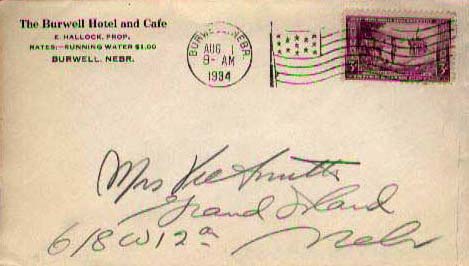 The Burwell Hotel and Cafe
E. HALLOCK, PROP.
RATES:—RUNNING WATER $1.00
BURWELL, NEBR.
BURWELL, NEBR.
AUG 1
9-AM
1934
3
Mrs
Grand Island
618 W 12th
Nebr